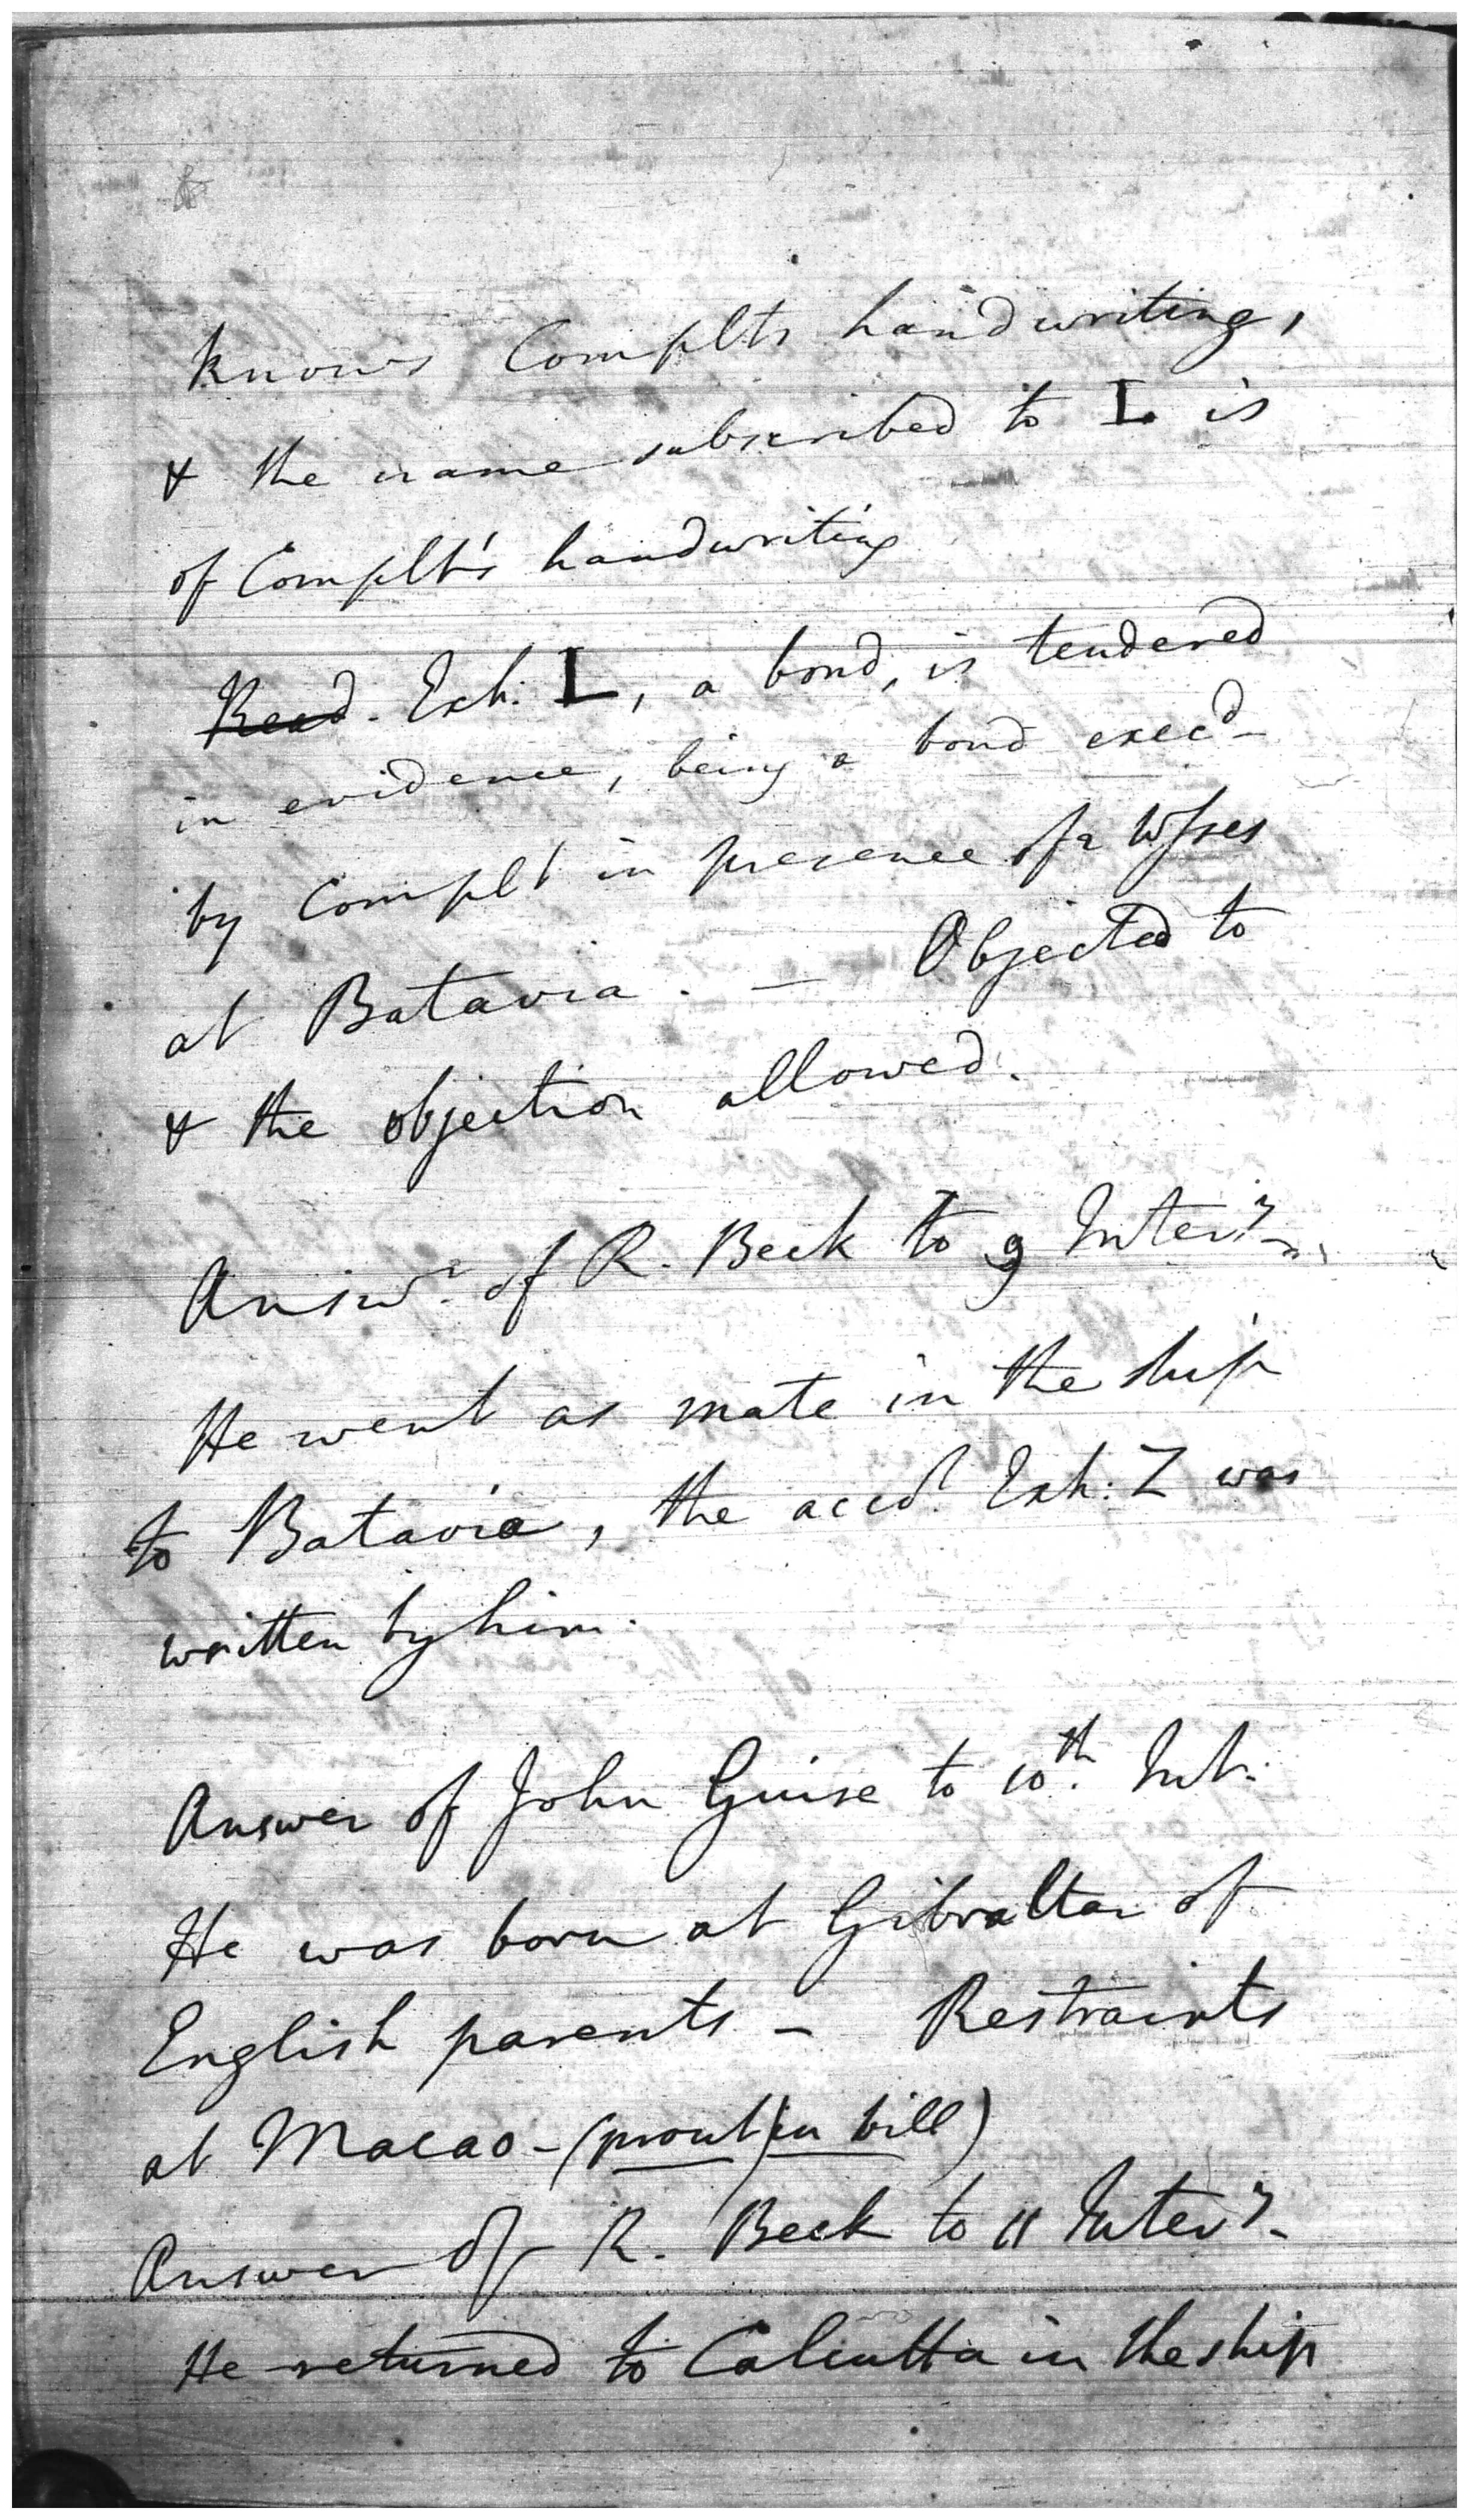 knows Complts handwriting,
& the name subscribed to L is
of Complt's handwriting
Read. Exh. L, a bond, is tendered
in evidence, being a bond execd
by Complt in presence of 2 Wsses
at Batavia. — Objected to
& the objection allowed.
Answr. of R. Beck to 9 Intery.
He went as mate in the ship
to Batavia, the Exh: Z was
written by him.
Answer of John Guise to 10th. Int.
He was born at Gibraltar of
English parents — Restraints
at Macao - (prout in bill)
Answer of R. Beck to 11 Intery.
He returned to Calcutta in the ship